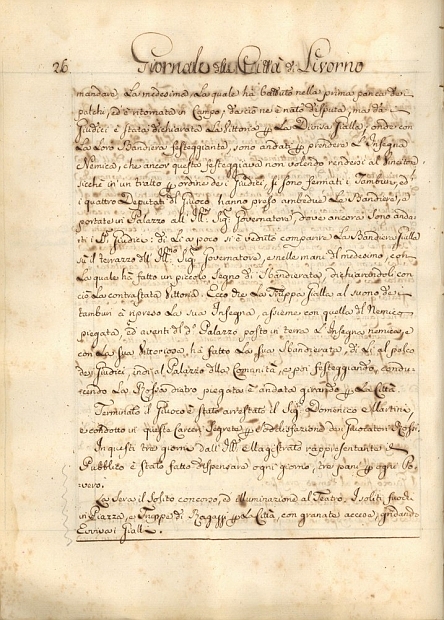 26. Giornale della Città di Livorno
mandare la medesima, la quale ha battuto nella prima panca de
palchi, ed è ritornata in Campo; da ciò ne è nato disputa, ma da
Giudici è stata dichiarata la Vittoria per la Divisa Gialla; onde con
la loro Bandiera festeggiante, sono andati per prendere l'Insegna
Nemica, che ancor questa festeggiava non volendo rendersi al Vincitore
sicche in un tratto per ordine dei Giudici, si sono fermati i Tamburi, ed
i quattro Deputati del Giuoco hanno preso ambedue le Bandiere, e
portate in Palazzo all' Ill. Sig. Governatore, dove ancora sono anda
ti i Giudici: di lì a poco si è veduto comparire la Bandiera Gialla
su il terrazzo dell' Ill. Sig. Governatore, e nelle mani del medesimo, con
la quale ha fatto un piccolo segno di sbandierata, dichiarandoli con
ciò la contrastata Vittoria. Ecco che la Truppa Gialla al suono de
tamburi à ripreso la sua Insegna, assieme con quella del Nemico
piegata, ed avanti il d. Palazzo posto in terra l'Insegna nemica, e
con la sua Vittoriosa ha fatto la sua sbandierata, di lì al palco
dei Giudici, indi al Palazzo della Comunità, e poi festeggiando, condu
cendo la Rossa dietro piegata è andata girando per la Città.
Terminato il Giuoco è stato arrestato il Sig. Domenico Martini
e condotto in queste Carceri segrete per sodisfazione dei Giuocatori Rossi.
In questi tre giorni dall' Ill. Magistrato rappresentante il
Pubblico è stato fatto dispensare ogni giorno, tre pani per ogni Po
vero.
La sera il solito concorso, ed illuminazione al Teatro. I soliti fuochi
in Piazza, e Truppe di Ragazzi per la Città, con granate accese, gridando
Evviva i Gialli.